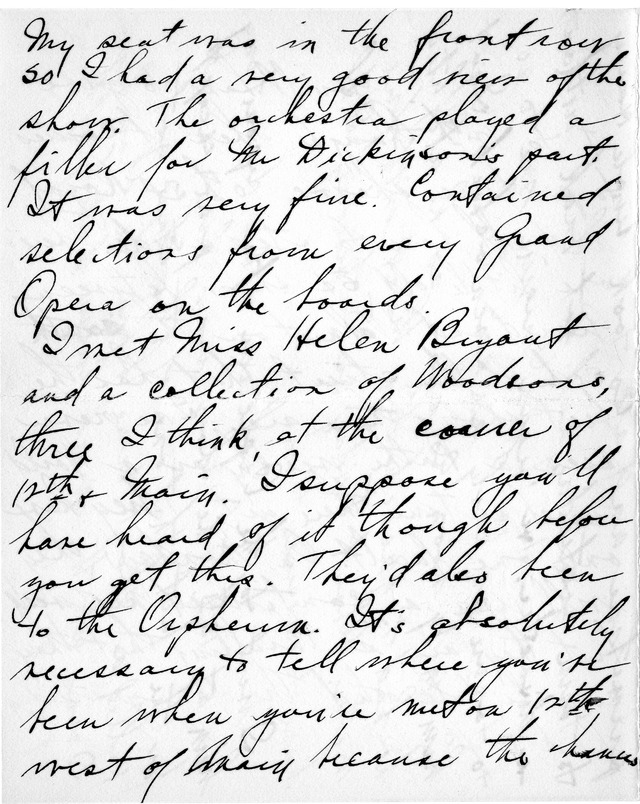 My seat was in the front row
so I had a very good view of the
show. The orchestra played a
filler for Mr Dickinson's part.
It was very fine. Contained
selections from every Grand
Opera on the boards.
I met Miss Helen Bryant
and a collection of Woodsons,
three I think, at the corner of
12th & Main. I suppose you'll
have heard of it though before
you get this. They'd also been
to the Orpheum. It's absolutely
necessary to tell where you've
been when you're met on 12th
west of Main because the chances